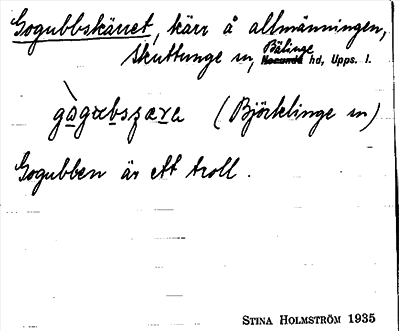 Gogubbskärret, kärr å allmänningen,
Skuttunge sn, Bälinge hd, Upps. l.
(Björklinge sn)
Gogubben är ett troll.
STINA HOLMSTRÖM 1935